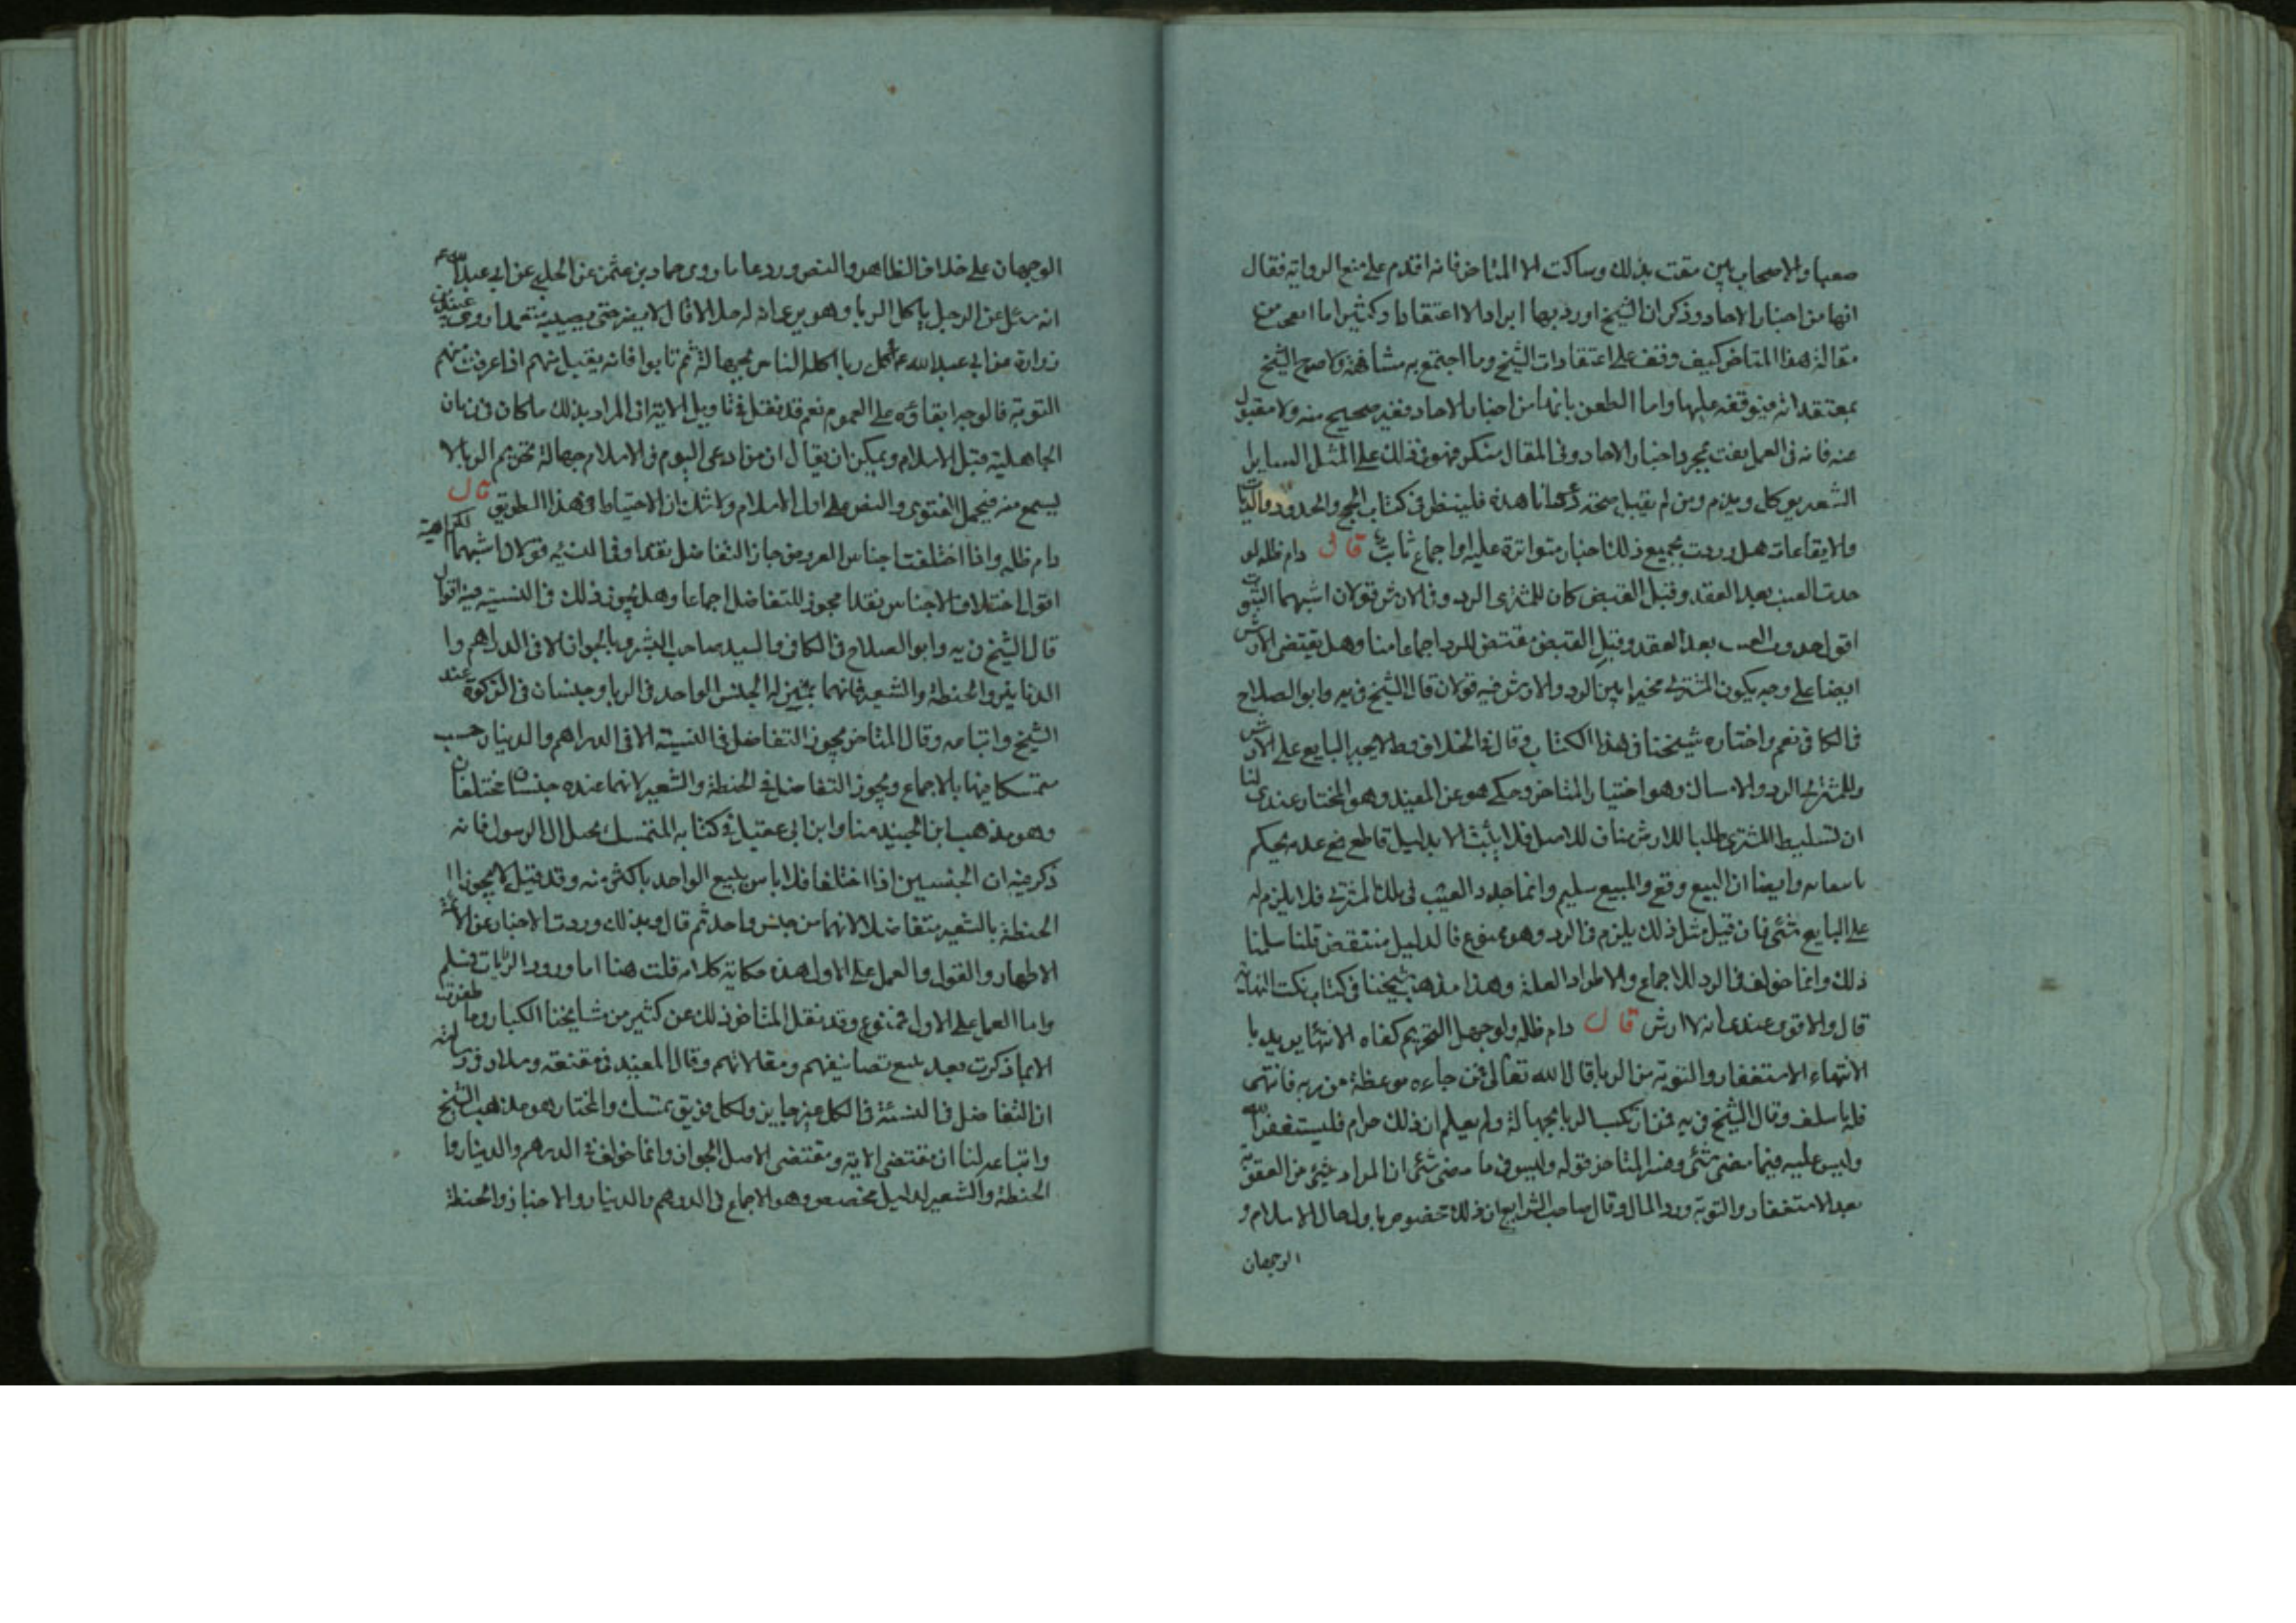 والاصحاب بين مفت بذلك وساكت الا المتاخر فانه اقدم على منع الرواية فقال
انها من اخبار الاحاد وذكر ان الشيخ اوردها ايرادا لا اعتقادا وكثيرا ما اتعجب من
مقالة هذا المتاخر كيف وقف على اعتقادات الشيخ وما اجتمع به مشافهة ولا صرح الشيخ
بمعتقداته فيتوقفه عليها واما الطعن بانها من اخبار الاحاد فغير صحيح منه ولا مقبول
عنه فانه في العمل يفت بمجرد اخبار الاحاد وفي المقال منكر فهو في ذلك على المثل الساير
الشعير يوكل ويذم ومن لم يقبل صحة دعوانا هذه فلينظر في كتاب الحج والحدود والديات
والايقاعات هل وردت بجميع ذلك اخبار متواترة عليه او اجماع ثابت قال دام ظله لو
حدث العيب بعد العقد وقبل القبض كان للمشتري الرد وفي الارش قولان اشبههما الثبوت
اقول حدوث العيب بعد العقد وقبل القبض مقتض للرد اجماعا منا وهل يقتضي الارش
ايضا على وجه يكون المشتري مخيرا بين الرد والارش فيه قولان قال الشيخ في يه وابو الصلاح
في الكافي نعم واختاره شيخنا في هذا الكتاب وقال في الخلاف وط لا يجبر البايع على الارش
وللمشتري الرد والامساك وهو اختيار المتاخر وحكي هو عن المفيد وهو المختار عندي لنا
ان تسليط المشتري طلبا للارش مناف للاصل فلا يثبت الا بدليل قاطع فمع عدمه يحكم
وايضا ان البيع وقع والمبيع سليم وانما تجدد العيب في ملك المشتري فلا يلزم له
على البايع شئ فان قيل مثل ذلك يلزم في الرد وهو ممنوع فالدليل منتقض قلنا سلمنا
ذلك وانما خولف في الرد للاجماع والاطراد العلة وهذا مذهب شيخنا في كتاب نكت النهاية
قال والاقوى عندي انه لا ارش قال دام ظله ولو جهل التحريم كفاه الانتهاء يريد با
الانتهاء الاستغفار والتوبة من الربا قال الله تعالى فمن جاءه موعظة من ربه فانتهى
فله ما سلف وقال الشيخ في يه فمن ارتكب الربا بجهالة ولم يعلم ان ذلك حرام فليستغفر الله
وليس عليه فيما مضى شئ وفسر المتاخر قوله وليس في ما مضى شئ ان المراد شئ من العقوبة
بعد الاستغفار والتوبة ورد المال وقال صاحب الشرايع ان ذلك مخصوص باول حال الاسلام و
الوجهان
الوجهان على خلاف الظاهر والنص ورد عاما روى حماد بن عثمن عن الحلبي عن ابي عبدالله ع
انه سئل عن الرجل ياكل الربا وهو يرى انه له حلال قال لا يضره حتى يصيبه متعمدا وروى عبيد بن
زرارة عن ابي عبدالله ع كل ربا اكله الناس بجهالة ثم تابوا فانه يقبل منهم اذا عرفت منهم
التوبة فالوجه ابقاؤه على العموم نعم قد نقل في تاويل الاية ان المراد بذلك ما كان في زمان
الجاهلية قبل الاسلام ويمكن ان يقال ان من ادعى اليوم في الاسلام جهالة تحريم الربا لا
يسمع منه فيحمل الفتوى والنص على اول الاسلام ولا شك ان الاحتياط في هذا الطريق قال
دام ظله واذا اختلفت اجناس العروض جاز التفاضل نقدا وفي النسيه قولان اشبههما الكراهية
اقول اختلاف الاجناس نقدا مجوز للتفاضل اجماعا وهل يجوز ذلك في النسية فيه اقوال
قال الشيخ في يه وابو الصلاح في الكافي والسيد صاحب البشرى بالجواز الا في الدراهم وا
الدنانير والحنطة والشعير فانهما بمنزلة الجنس الواحد في الربا وجنسان في الزكوة عند
الشيخ واتباعه وقال المتاخر يجوز التفاضل في النسية الا في الدراهم والدينار حسب
متمسكا فيها بالاجماع ويجوز التفاضل في الحنطة والشعير لانهما عنده جنسان مختلفان
وهو مذهب ابن الجنيد منا وابن ابي عقيل في كتابه المتمسك بحبل ال الرسول فانه
ذكر فيه ان الجنسين اذا اختلفا فلا باس ببيع الواحد باكثر منه وقد قيل لا يجوز ا
الحنطة بالشعير متفاضلا لانهما من جنس واحد ثم قال وبذلك وردت الاخبار عن الائمة
الاطهار والقول والعمل على الاول هذه حكاية كلامه قلت هنا اما ورود الروايات فنسلم
واما العمل على الاول فممنوع وقد نقل المتاخر ذلك عن كثير من مشايخنا الكبار وما ظفرت
الا بما ذكرت بعد تتبع تصانيفهم ومقالاتهم وقال المفيد في مقنعته وسلار في رسالته
ان التفاضل في النسئة في الكل غير جايز ولكل فريق تمسك والمختار هو مذهب الشيخ
واتباعه لنا ان مقتضى الاية ومقتضى الاصل الجواز وانما خولف في الدرهم والدينار وا
الحنطة والشعير لدليل مخصص وهو الاجماع في الدرهم والدينار والاخبار في الحنطة